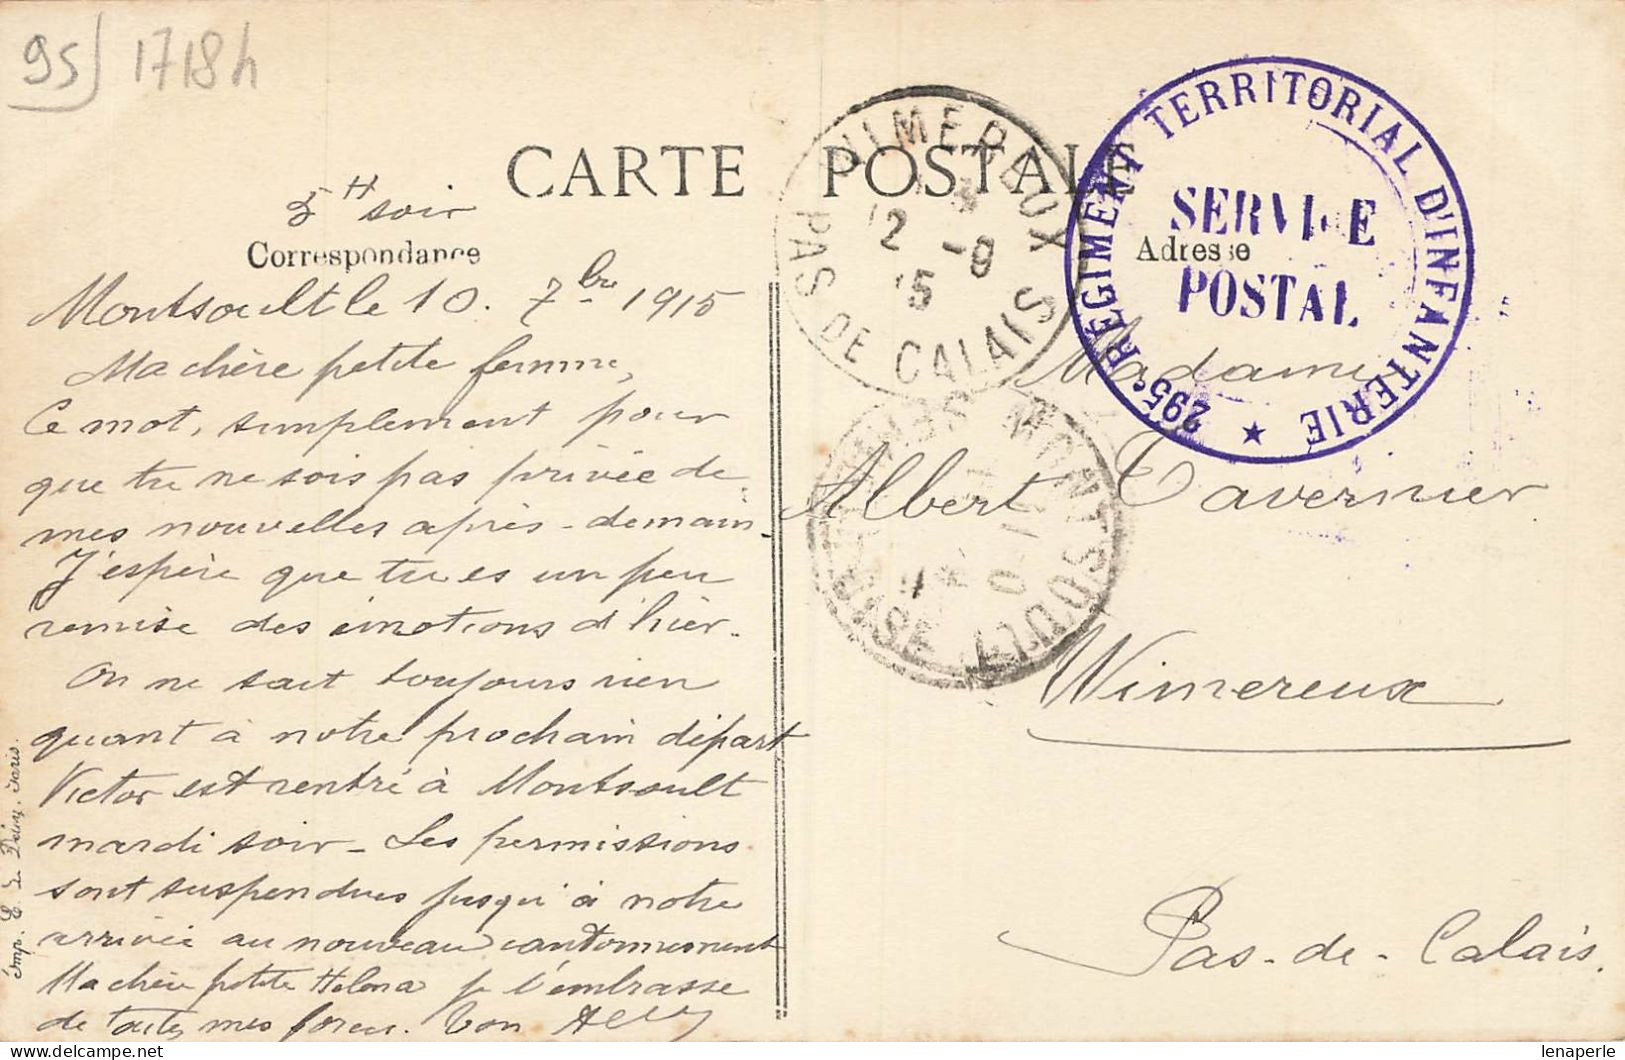 95) 1718h
CARTE POSTALE
5H soir
Correspondance
Montsoult le 10. 7bre 1915
Ma chère petite femme,
Ce mot, simplement pour
que tu ne sois pas privée de
mes nouvelles après-demain.
J'espère que tu es un peu
remise des émotions d'hier.
On ne sait toujours rien
quant à notre prochain départ
Victor est rentré à Montsoult
mardi soir - Les permissions
sont suspendues jusqu'à notre
arrivée au nouveau cantonnement
Ma chère petite Helena je t'embrasse
de toutes mes forces. Ton
Imp. E. Le Deley, Paris.
WIMEREUX
12 -9
15
PAS DE CALAIS
MONTSOULT
SEINE-ET-OISE
295e RÉGIMENT TERRITORIAL D'INFANTERIE ★
SERVICE
POSTAL
Adresse
Madame
Albert Tavernier
Wimereux
Pas-de-Calais.
lenaperle